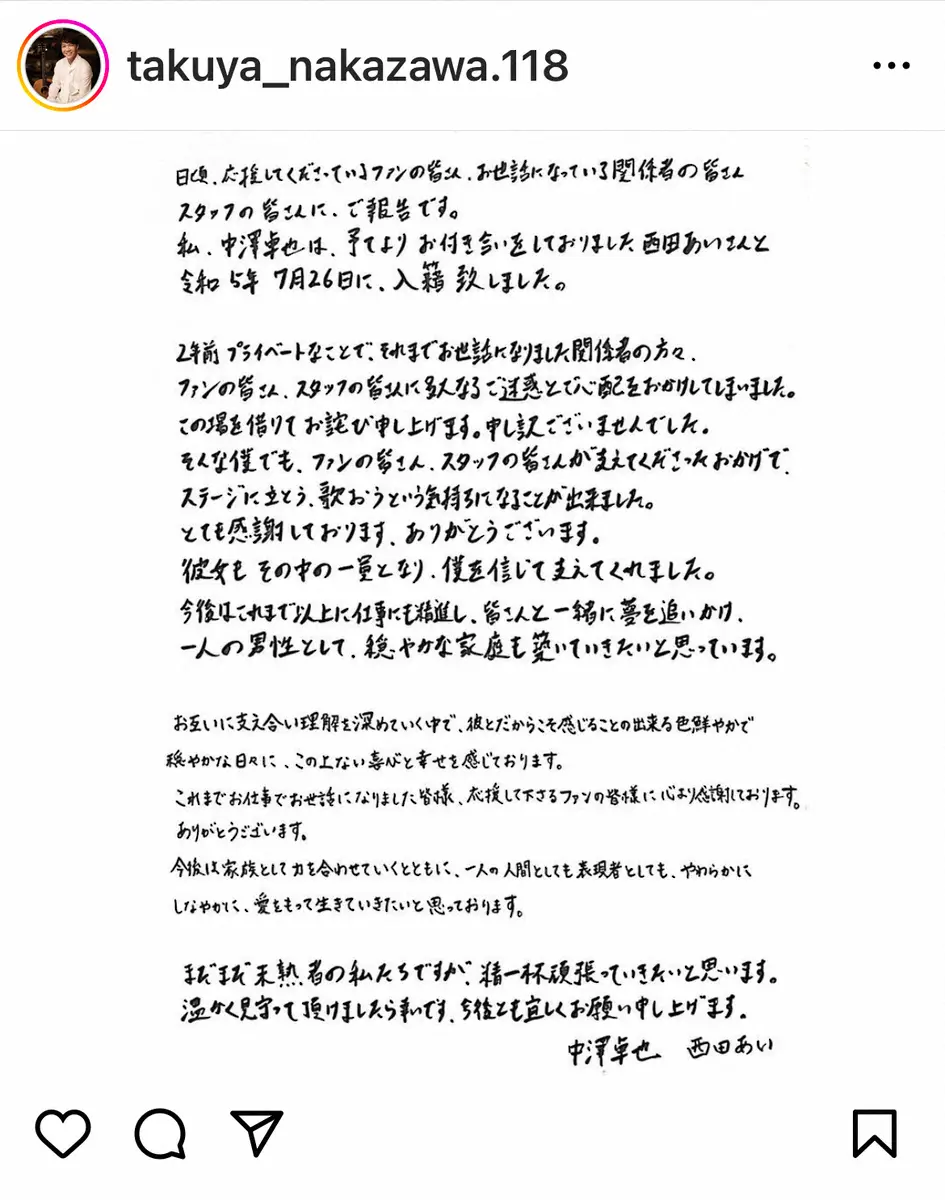 takuya_nakazawa.118
日頃、応援してくださっているファンの皆さん、お世話になっている関係者の皆さん
スタッフの皆さんに、ご報告です。
私、中澤卓也は、予てよりお付き合いをしておりました西田あいさんと
令和5年7月26日に、入籍致しました。
2年前プライベートなことで、それまでお世話になりました関係者の方々、
ファンの皆さん、スタッフの皆さんに多大なるご迷惑とご心配をおかけしてしまいました。
この場を借りてお詫び申し上げます。申し訳ございませんでした。
そんな僕でも、ファンの皆さん、スタッフの皆さんが支えてくださったおかげで、
ステージに立とう、歌おうという気持ちになることが出来ました。
とても感謝しております、ありがとうございます。
彼女もその中の一員となり、僕を信じて支えてくれました。
今後はこれまで以上に仕事にも精進し、皆さんと一緒に夢を追いかけ、
一人の男性として、穏やかな家庭も築いていきたいと思っています。
お互いに支え合い理解を深めていく中で、彼とだからこそ感じることの出来る色鮮やかで
穏やかな日々に、この上ない喜びと幸せを感じております。
これまでお仕事でお世話になりました皆様、応援して下さるファンの皆様に心より感謝しております。
ありがとうございます。
今後は家族として力を合わせていくとともに、一人の人間としても表現者としても、やわらかに
しなやかに、愛をもって生きていきたいと思っております。
まだまだ未熟者の私たちですが、精一杯頑張っていきたいと思います。
温かく見守って頂けましたら幸いです、今後とも宜しくお願い申し上げます。
中澤卓也 西田あい